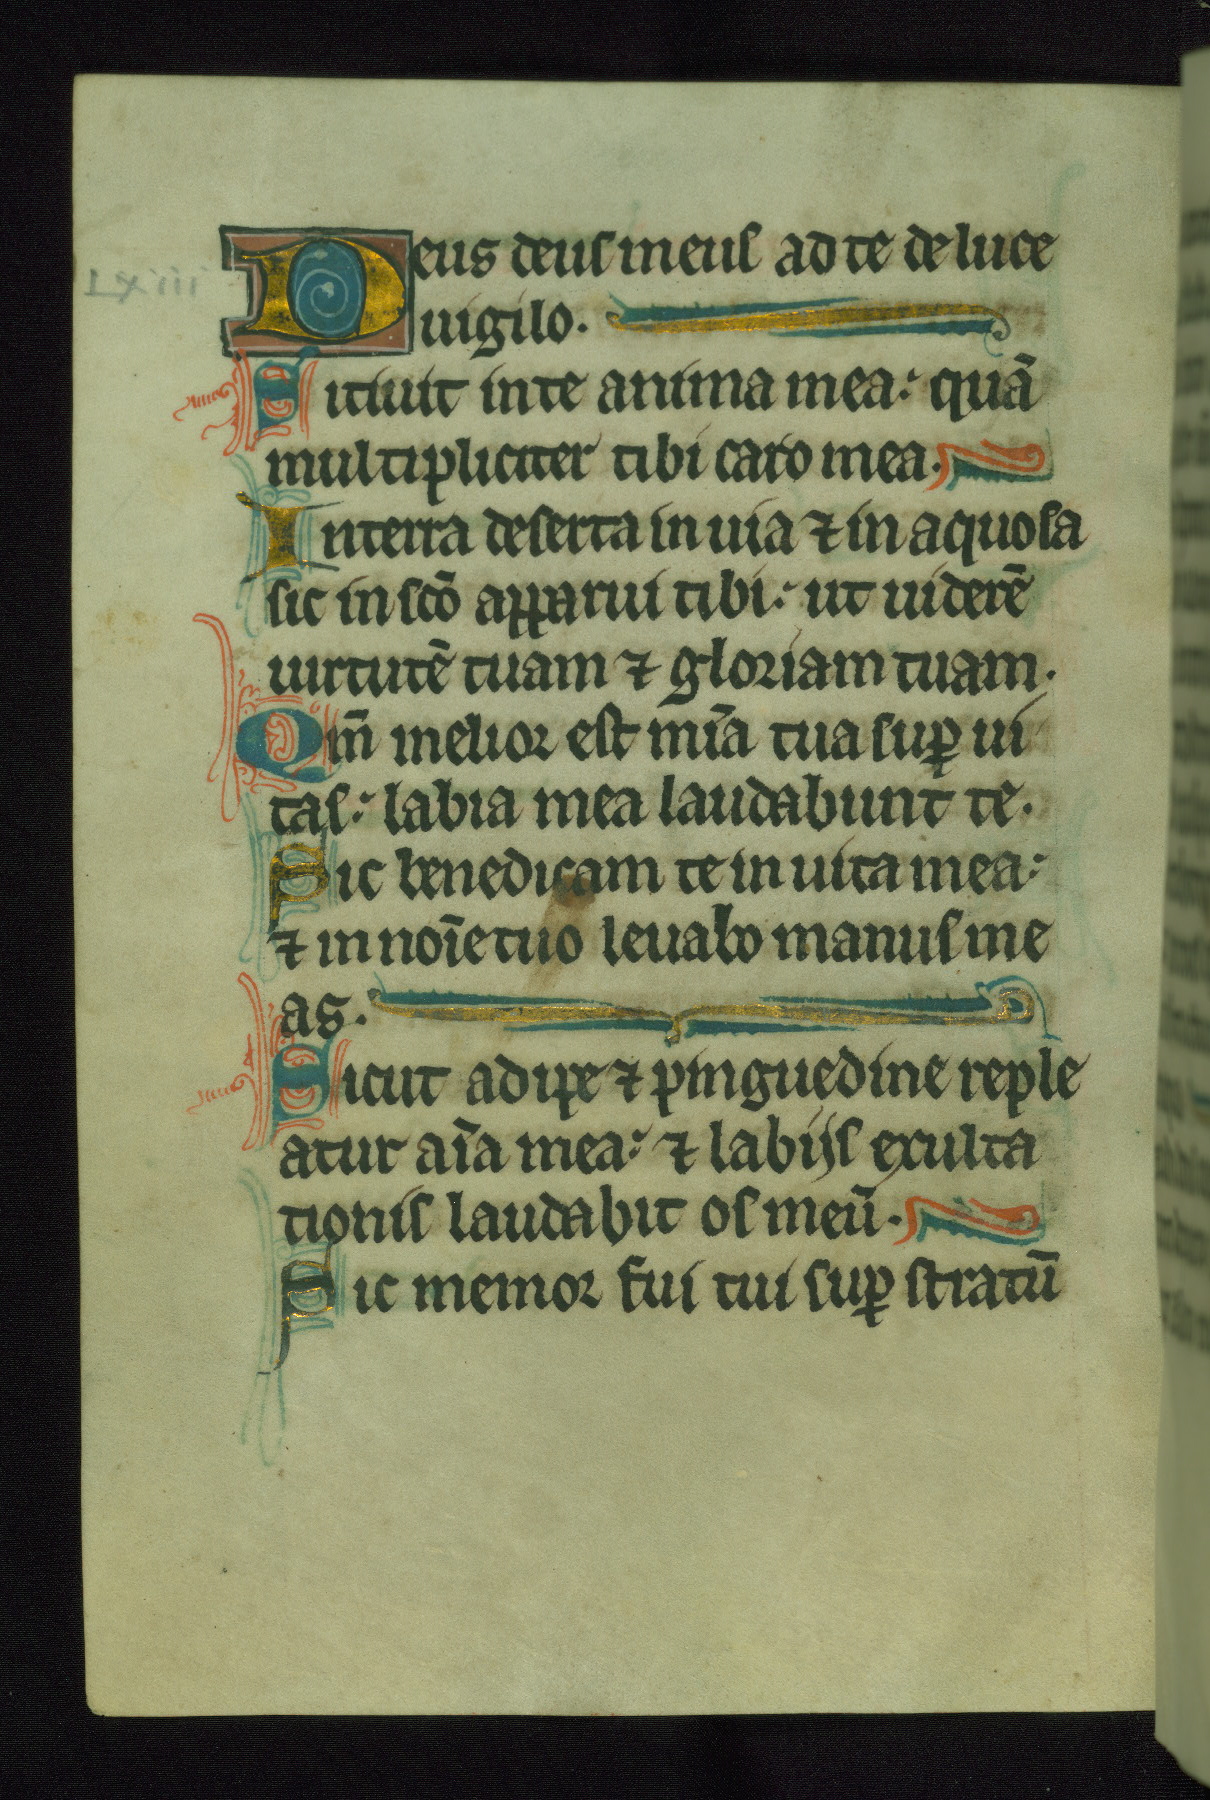 Deus deus meus ad te de luce
uigilo.
Sitiuit in te anima mea: quā
multipliciter tibi caro mea.
In terra deserta in uia ⁊ in aquosa
sic in scō apparui tibi: ut uiderē
uirtutē tuam ⁊ gloriam tuam.
Qm̄ melior est mīa tua suꝑ ui
tas: labia mea laudabunt te.
Sic benedicam te in uita mea:
⁊ in noīe tuo leuabo manus me
as.
Sicut adipe ⁊ pinguedine reple
atur aīa mea: ⁊ labijs exulta
tionis laudabit os meū.
Sic memor fui tui suꝑ stratū
Lxiii